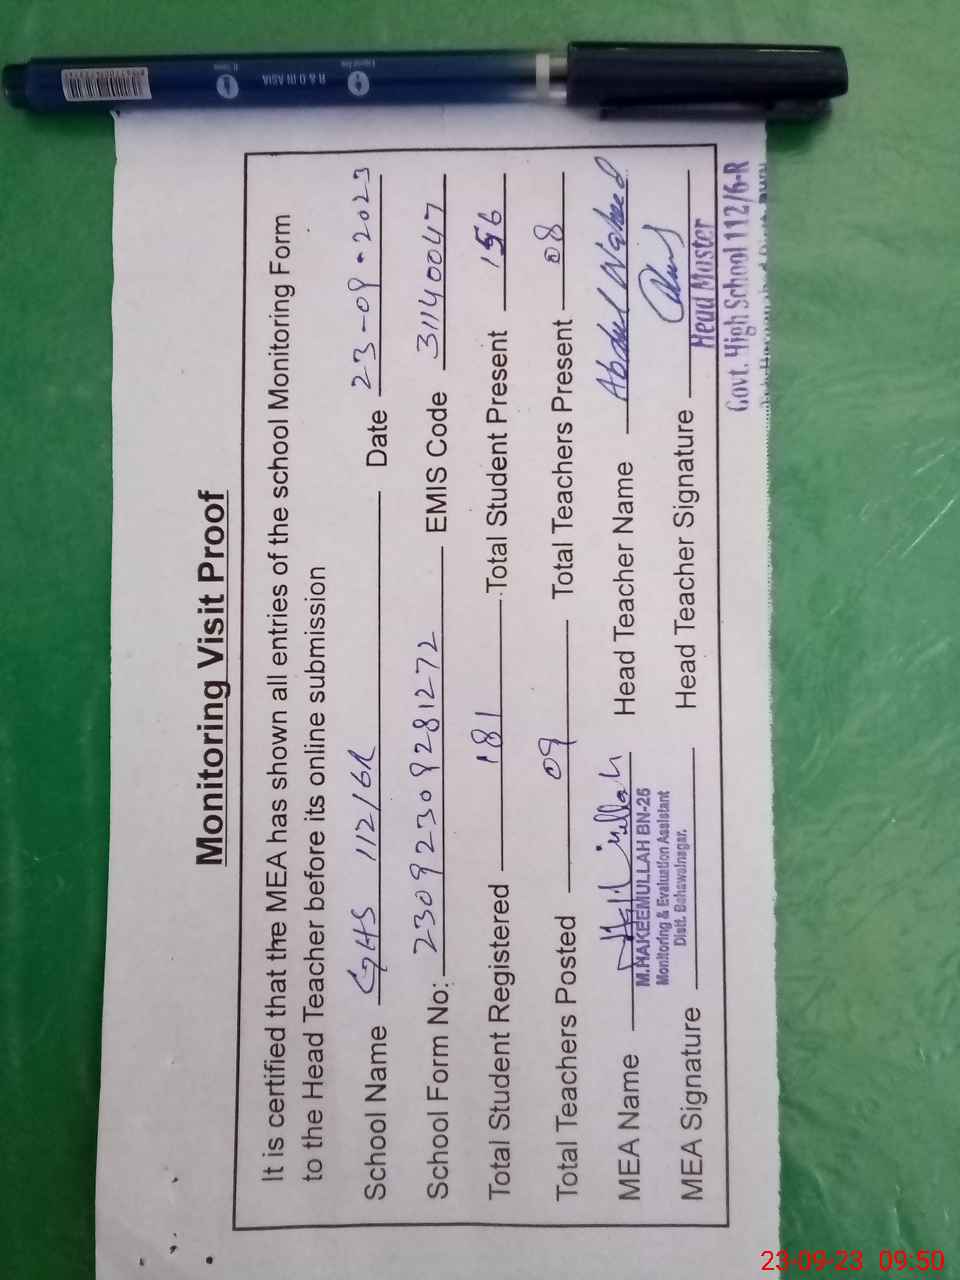 Monitoring Visit Proof
It is certified that the MEA has shown all entries of the school Monitoring Form
to the Head Teacher before its online submission
School Name GHS 112/6R Date 23-09-2023
School Form No: 2309230928127​2 EMIS Code 31140047
Total Student Registered 181 Total Student Present 156
Total Teachers Posted 09 Total Teachers Present 08
MEA Name Head Teacher Name Abdul Waheed
M.HAKEEMULLAH BN-26
Monitoring & Evaluation Assistant
Distt. Bahawalnagar.
MEA Signature Head Teacher Signature
Head Master
Govt. High School 112/6-R
R & D IN ASIA
23-09-23 09:50